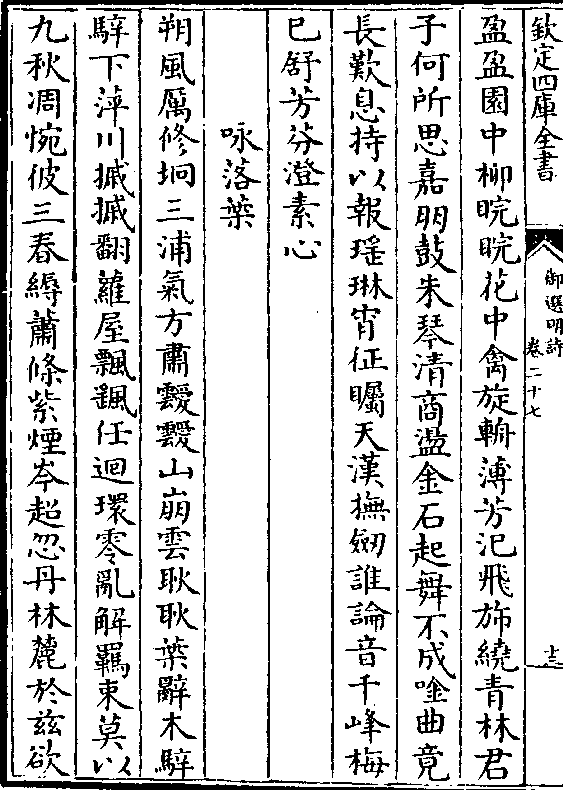 欽定四庫全書
御選明詩
卷二十七
十三
盈盈園中柳睆睆花中禽旋輈薄芳汜飛斾繞青林君
子何所思嘉朋鼓朱琴清商盪金石起舞不成唫曲竟
長歎息持以報瑤琳宵征矚天漢撫劒誰論音千峰梅
已舒芳芬澄素心
咏落葉
朔風厲修坰三浦氣方肅靉靉山崩雲耿耿葉辭木騂
騂下萍川摵摵翻蘿屋飄颻任迴環零亂解羈束莫以
九秋凋惋彼三春縟蕭條紫煙岑超忽丹林麓於兹欲